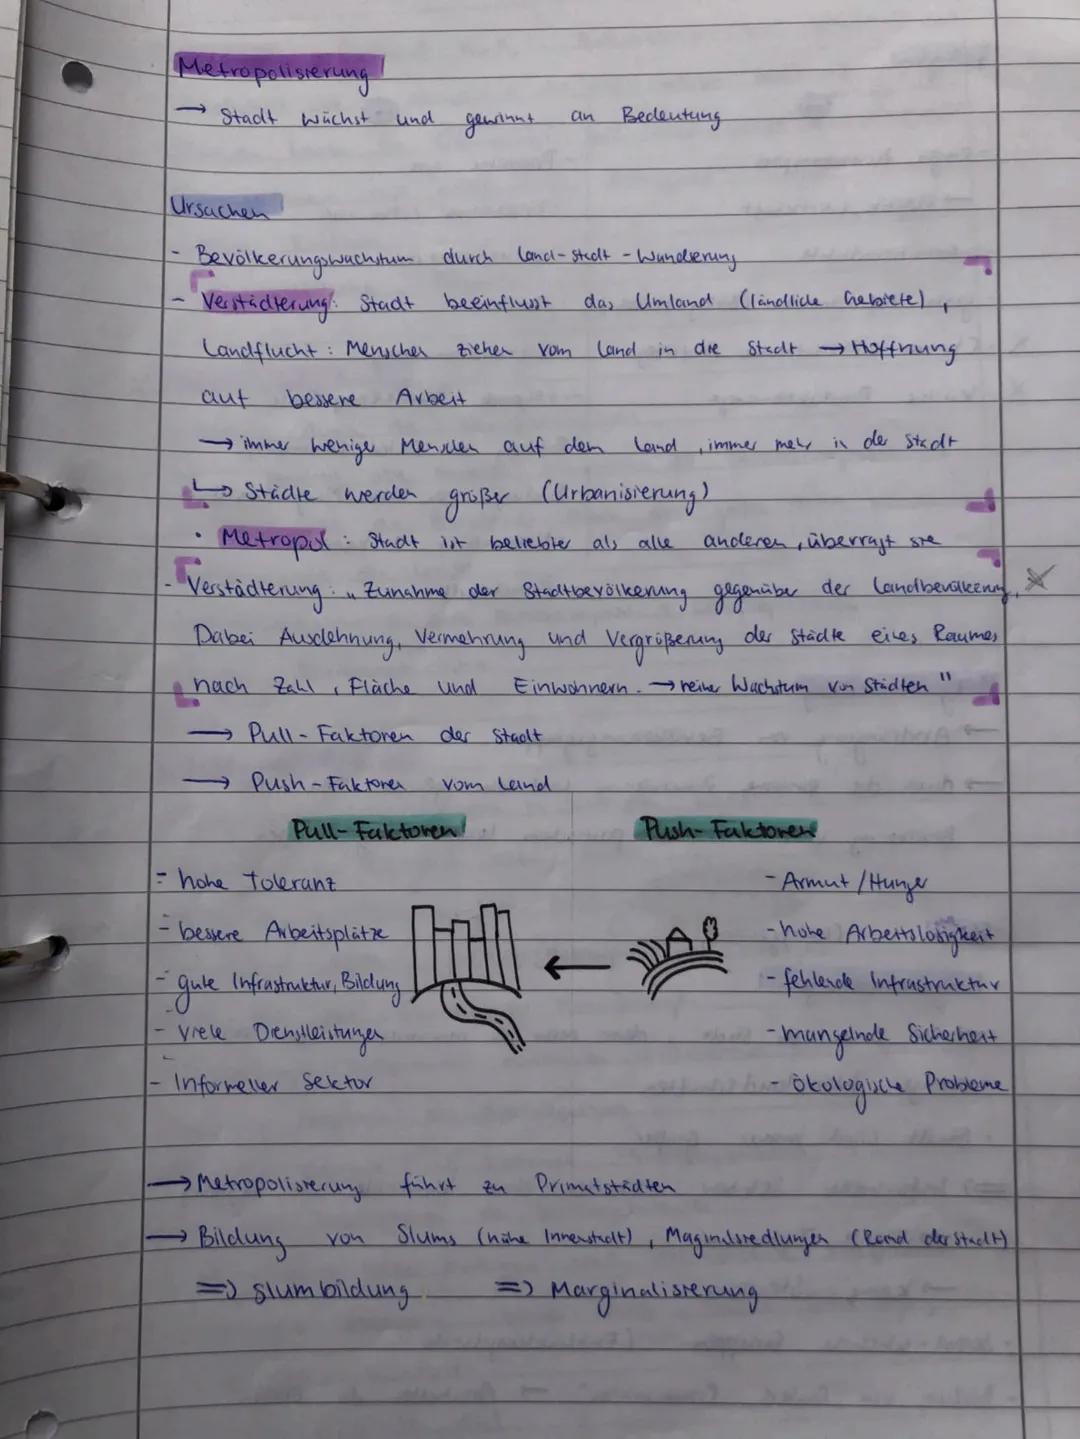 Metropolisierung
→ Stadt wächst und gewinnt an Bedeutung
Ursachen
- Bevölkerungswachstum durch Land-Stadt-Wanderung
- Verstädterung: Stadt beeinflusst das Umland (ländliche Gebiete),
Landflucht: Menschen ziehen vom Land in die Stadt → Hoffnung
auf bessere Arbeit
→ immer wenige Menschen auf dem Land, immer mehr in der Stadt
↳ Städte werden größer (Urbanisierung)
• Metropol: Stadt ist beliebter als alle anderen, überragt sie
- Verstädterung: „Zunahme der Stadtbevölkerung gegenüber der Landbevölkerung.
Dabei Ausdehnung, Vermehrung und Vergrößerung der Städte eines Raumes
nach Zahl, Fläche und Einwohnern. → reines Wachstum von Städten"
→ Pull-Faktoren der Stadt
→ Push-Faktoren vom Land
Pull-Faktoren Push-Faktoren
- hohe Toleranz
- bessere Arbeitsplätze
- gute Infrastruktur, Bildung
- viele Dienstleistungen
- Informeller Sektor
- Armut / Hunger
- hohe Arbeitslosigkeit
- fehlende Infrastruktur
- mangelnde Sicherheit
- ökologische Probleme
→ Metropolisierung führt zu Primatstädten
→ Bildung von Slums (nähe Innenstadt), Maginalsiedlungen (Rand der Stadt)
=> Slumbildung => Marginalisierung